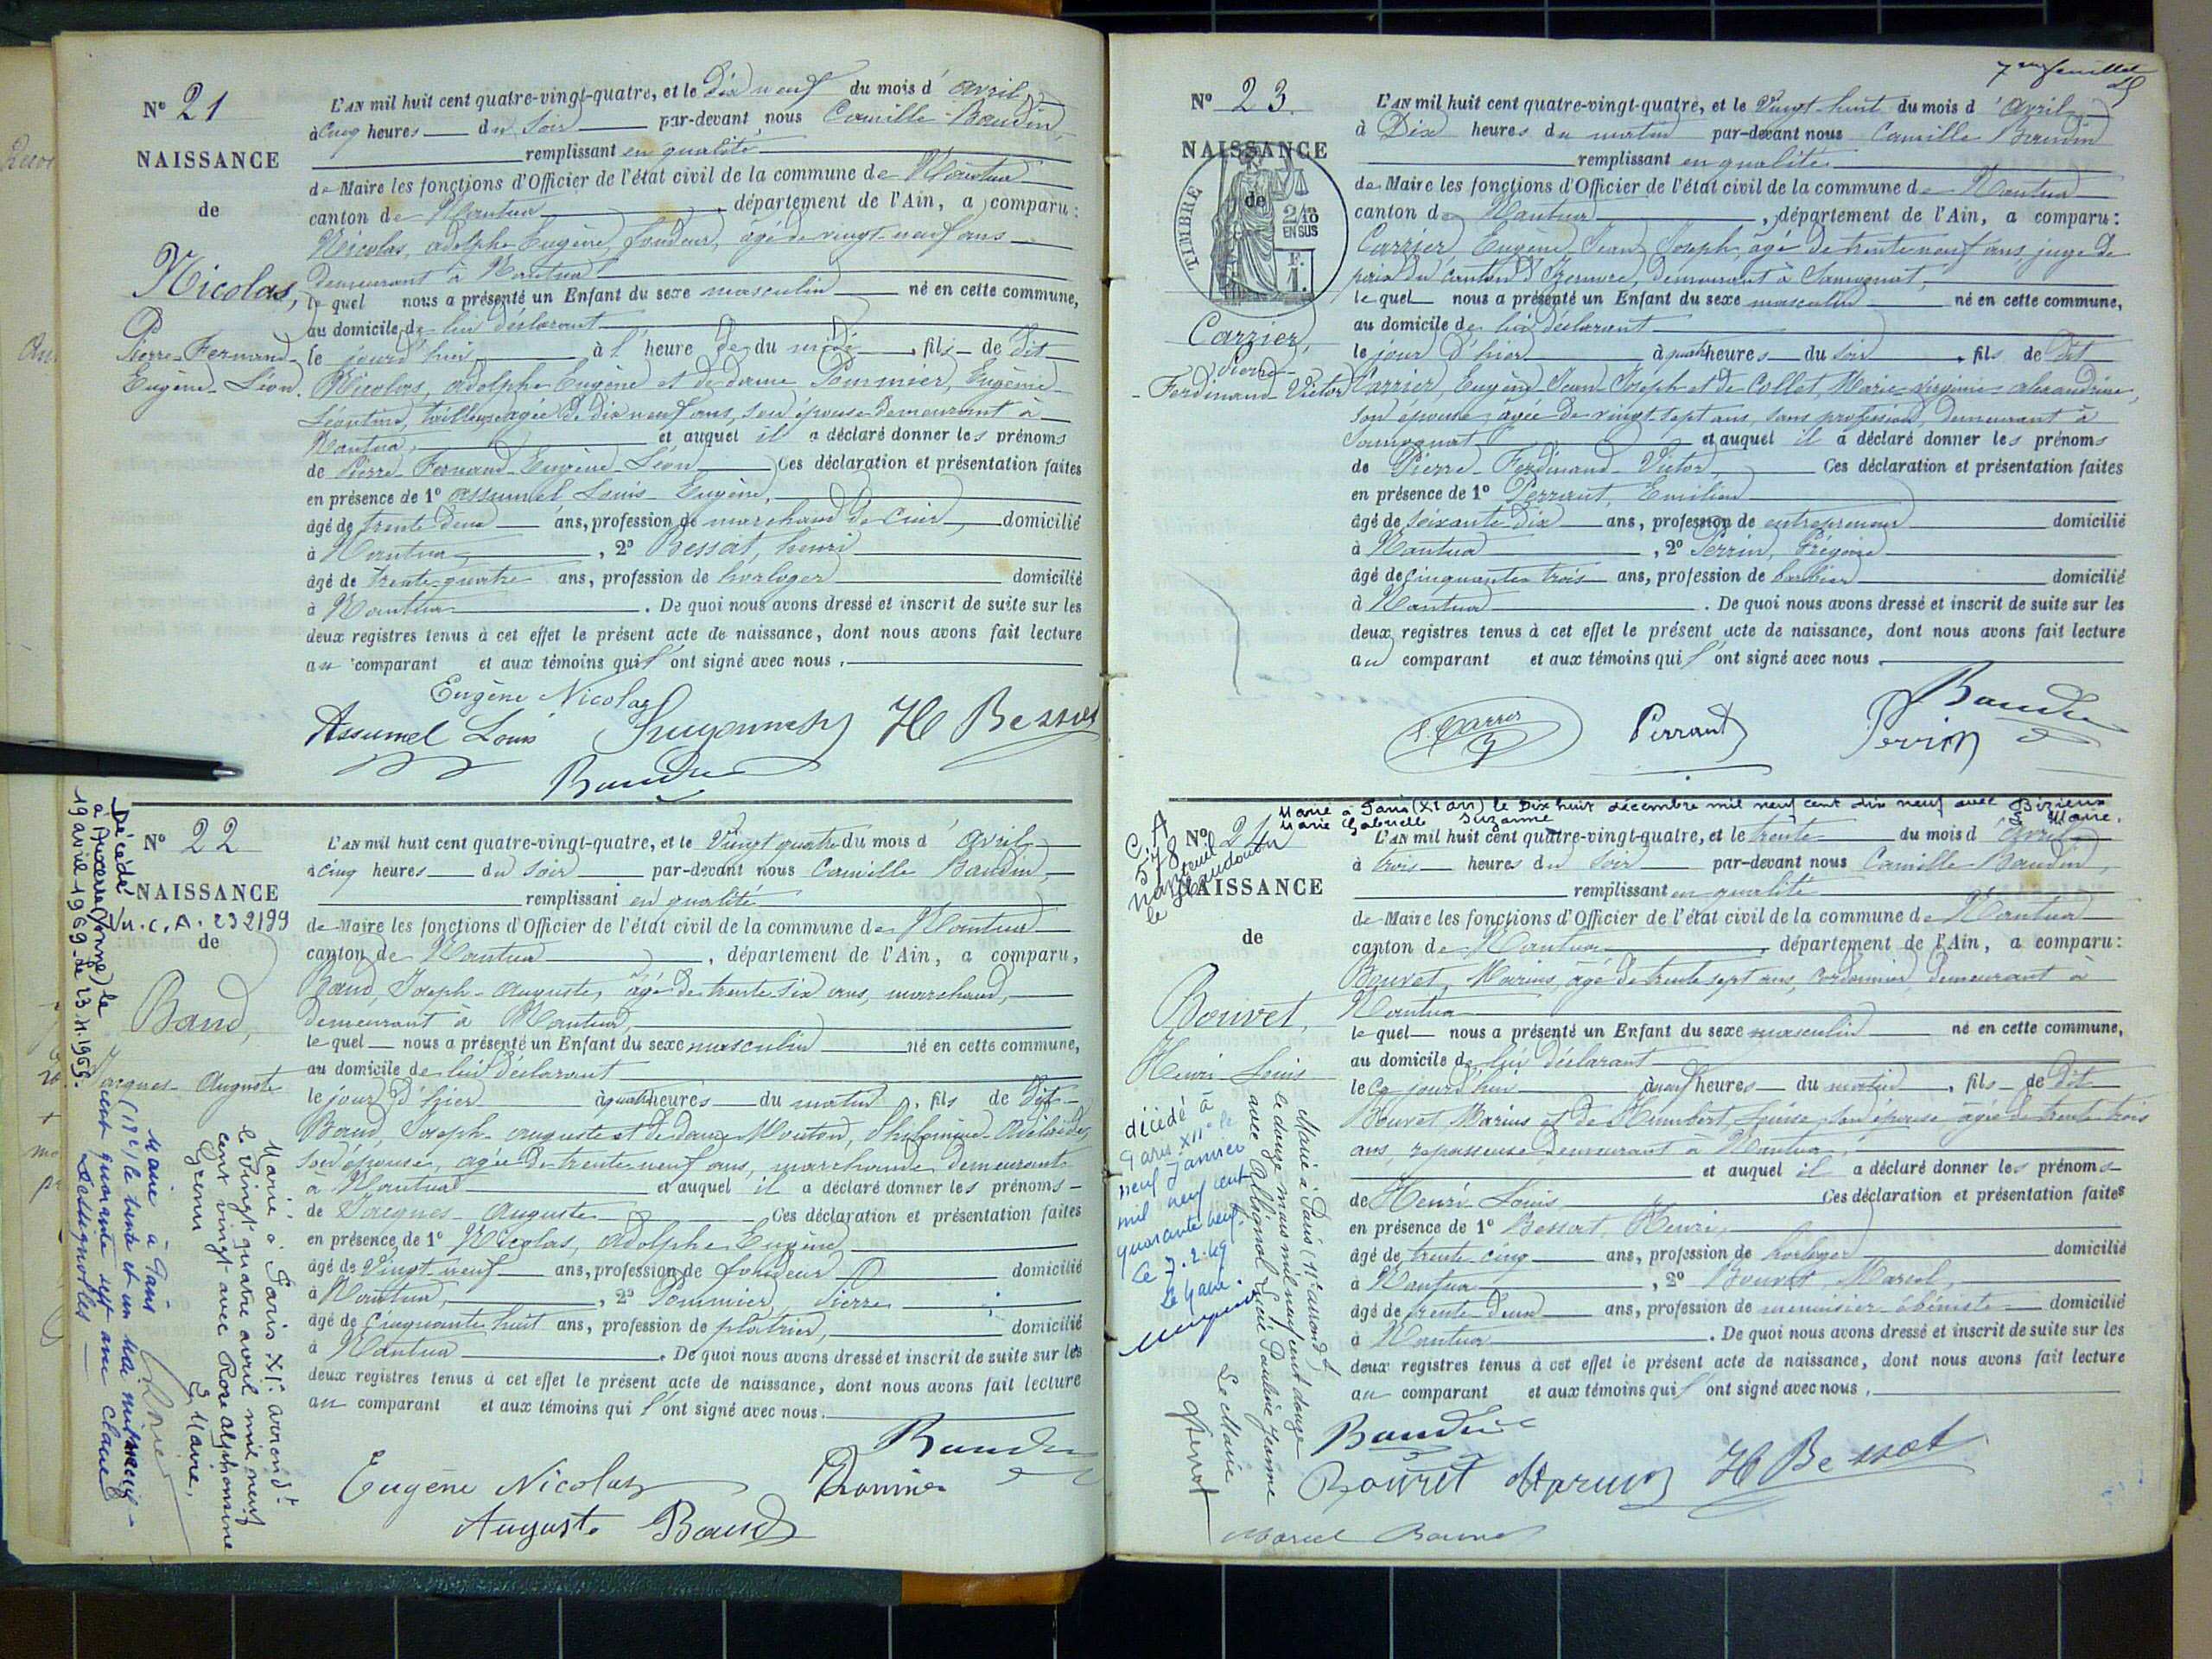 N° 21
NAISSANCE
de
Nicolas,
Pierre-Fernand-
Eugène-Léon.
L'AN mil huit cent quatre-vingt-quatre, et le Dix neuf du mois d'avril,
à Cinq heures du soir par-devant nous Camille Baudin,
remplissant en qualité
de Maire les fonctions d'Officier de l'état civil de la commune de Nantua
canton de Nantua, département de l'Ain, a comparu:
Nicolas, adolphe Eugène, fondeur, âgé de vingt-neuf ans
demeurant à Nantua
lequel nous a présenté un Enfant du sexe masculin né en cette commune,
au domicile de lui déclarant
le jourd'hui à l'heure de du midi, fils de dit
Nicolas, adolphe Eugène et de dame Pommier, Eugénie
Léontine, tailleuse âgée de dix neuf ans, son épouse demeurant à
Nantua, et auquel il a déclaré donner les prénoms
de Pierre-Fernand-Eugène-Léon Ces déclaration et présentation faites
en présence de 1° Assumel Louis-Eugène,
âgé de trente deux ans, profession de marchand de cuir, domicilié
à Nantua, 2° Bessat, henri
âgé de trente-quatre ans, profession de horloger domicilié
à Nantua. De quoi nous avons dressé et inscrit de suite sur les
deux registres tenus à cet effet le présent acte de naissance, dont nous avons fait lecture
au comparant et aux témoins qui l'ont signé avec nous.
Eugène Nicolas
Assumel Louis H Bessat
Baudin
N° 22
NAISSANCE
de
Baud,
Jacques-Auguste
Décédé
à Auxerre (Yonne) le
19 avril 1969. le 23.4.1969.
Vu. C. A. 232199
L'AN mil huit cent quatre-vingt-quatre, et le Vingt quatre du mois d'avril
à cinq heures du soir par-devant nous Camille Baudin,
remplissant en qualité
de Maire les fonctions d'Officier de l'état civil de la commune de Nantua
canton de Nantua, département de l'Ain, a comparu,
Baud, Joseph-Auguste, âgé de trente six ans, marchand,
demeurant à Nantua,
lequel nous a présenté un Enfant du sexe masculin né en cette commune,
au domicile de lui déclarant
le jour d'hier à quatre heures du matin, fils de dit
Baud, Joseph-auguste et de dame Mouton, Philomène-Adélaïde,
son épouse, agée de trente neuf ans, marchande, demeurant
à Nantua et auquel il a déclaré donner les prénoms
de Jacques-Auguste Ces déclaration et présentation faites
en présence de 1° Nicolas, Adolphe Eugène
âgé de Vingt-neuf ans, profession de fondeur domicilié
à Nantua, 2° Pommier, Pierre
âgé de Cinquante huit ans, profession de plâtrier, domicilié
à Nantua. De quoi nous avons dressé et inscrit de suite sur les
deux registres tenus à cet effet le présent acte de naissance, dont nous avons fait lecture
au comparant et aux témoins qui l'ont signé avec nous.
Baudin
Eugène Nicolas Pommier
Auguste Baud
Marié à Paris XI° arrondt
le vingt quatre avril mil neuf
cent vingt avec Rose alphonsine
Grenu
Le Maire,
Marié à Paris
(18e) le trente et un mai mil neuf
cent quarante sept avec Claude
7me feuillet
N° 23.
NAISSANCE
de
TIMBRE
2/10
EN SUS
F.
1.
Carrier,
Pierre-
Ferdinand-Victor
L'AN mil huit cent quatre-vingt-quatre, et le Vingt-huit du mois d'avril
à Dix heures du matin par-devant nous Camille Baudin
remplissant en qualité
de Maire les fonctions d'Officier de l'état civil de la commune de Nantua
canton de Nantua, département de l'Ain, a comparu:
Carrier, Eugène, Jean, Joseph, âgé de trente neuf ans, juge de
paix du canton d'Izernore, demeurant à Samognat,
lequel nous a présenté un Enfant du sexe masculin né en cette commune,
au domicile de lui déclarant
le jour d'hier à quatre heures du soir, fils de dit
Carrier, Eugène Jean-Joseph et de Collet, Marie-virginie-alexandrine,
son épouse, âgée de vingt-sept ans, sans profession, demeurant à
Samognat et auquel il a déclaré donner les prénoms
de Pierre-Ferdinand-Victor Ces déclaration et présentation faites
en présence de 1° Perraut, Emilien
âgé de soixante dix ans, profession de entrepreneur domicilié
à Nantua, 2° Perrin, Grégoire
âgé de cinquante trois ans, profession de barbier domicilié
à Nantua. De quoi nous avons dressé et inscrit de suite sur les
deux registres tenus à cet effet le présent acte de naissance, dont nous avons fait lecture
au comparant et aux témoins qui l'ont signé avec nous.
Baudin
E. Carrier Perraut Perrin
Marié à Paris (XI arr) le Dix huit décembre mil neuf cent dix neuf avec Bizieux
Marie Gabrielle Suzanne Le Maire.
C.A
578
Nanteuil
le Haudouin
N° 24
NAISSANCE
de
Bouvet,
Henri-Louis
L'AN mil huit cent quatre-vingt-quatre, et le trente du mois d'avril
à trois heures du soir par-devant nous Camille Baudin,
remplissant en qualité
de Maire les fonctions d'Officier de l'état civil de la commune de Nantua
canton de Nantua, département de l'Ain, a comparu:
Bouvet, Marius, âgé de trente sept ans, cordonnier, demeurant à
Nantua
lequel nous a présenté un Enfant du sexe masculin né en cette commune,
au domicile de lui déclarant
le Ce jourd'hui à neuf heures du matin, fils de dit
Bouvet, Marius et de Humbert, Louise, son épouse âgée de trente trois
ans, repasseuse demeurant à Nantua,
et auquel il a déclaré donner les prénoms
de Henri-Louis Ces déclaration et présentation faites
en présence de 1° Bessat, Henri,
âgé de trente cinq ans, profession de horloger domicilié
à Nantua, 2° Bouvet, Marcel,
âgé de trente deux ans, profession de menuisier-ébéniste domicilié
à Nantua. De quoi nous avons dressé et inscrit de suite sur les
deux registres tenus à cet effet le présent acte de naissance, dont nous avons fait lecture
au comparant et aux témoins qui l'ont signé avec nous.
Baudin
Bouvet Marius H Bessat
Marcel Bouvet
décédé à
Paris XII° le
neuf Janvier
mil neuf cent
quarante neuf.
Le 7.2.49
Le Maire.
Marié à Paris (11e arrondt)
le douze mars mil neuf cent douze
avec Albignol Lucie Pauline Jeanne
Le Maire